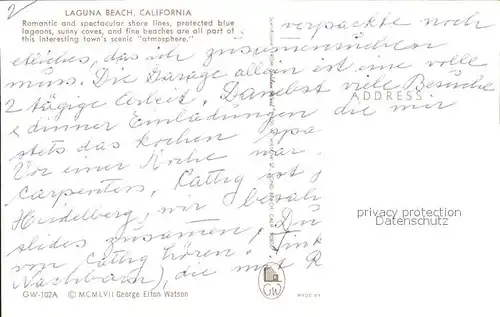 2)
LAGUNA BEACH, CALIFORNIA
Romantic and spectacular shore lines, protected blue
lagoons, sunny coves, and fine beaches are all part of
this interesting town's scenic "atmosphere."
verpackte noch
etliches, das ich zusammensuchen
muss. Die Garage allein ist eine volle
2 tägige Arbeit. Danebst viele Besuche
ADDRESS
& dinner Einladungen die mir
stets das kochen spa
Vor einer Woche war
Carpenters, Cathy ist
Heidelberg, wir
slides zusammen, Du
von Cathy hören.
Nachbarn), die mit R
privacy protection
www.oldthing.de
GW-102A © MCMLVII George Elton Watson
GW
MADE BY